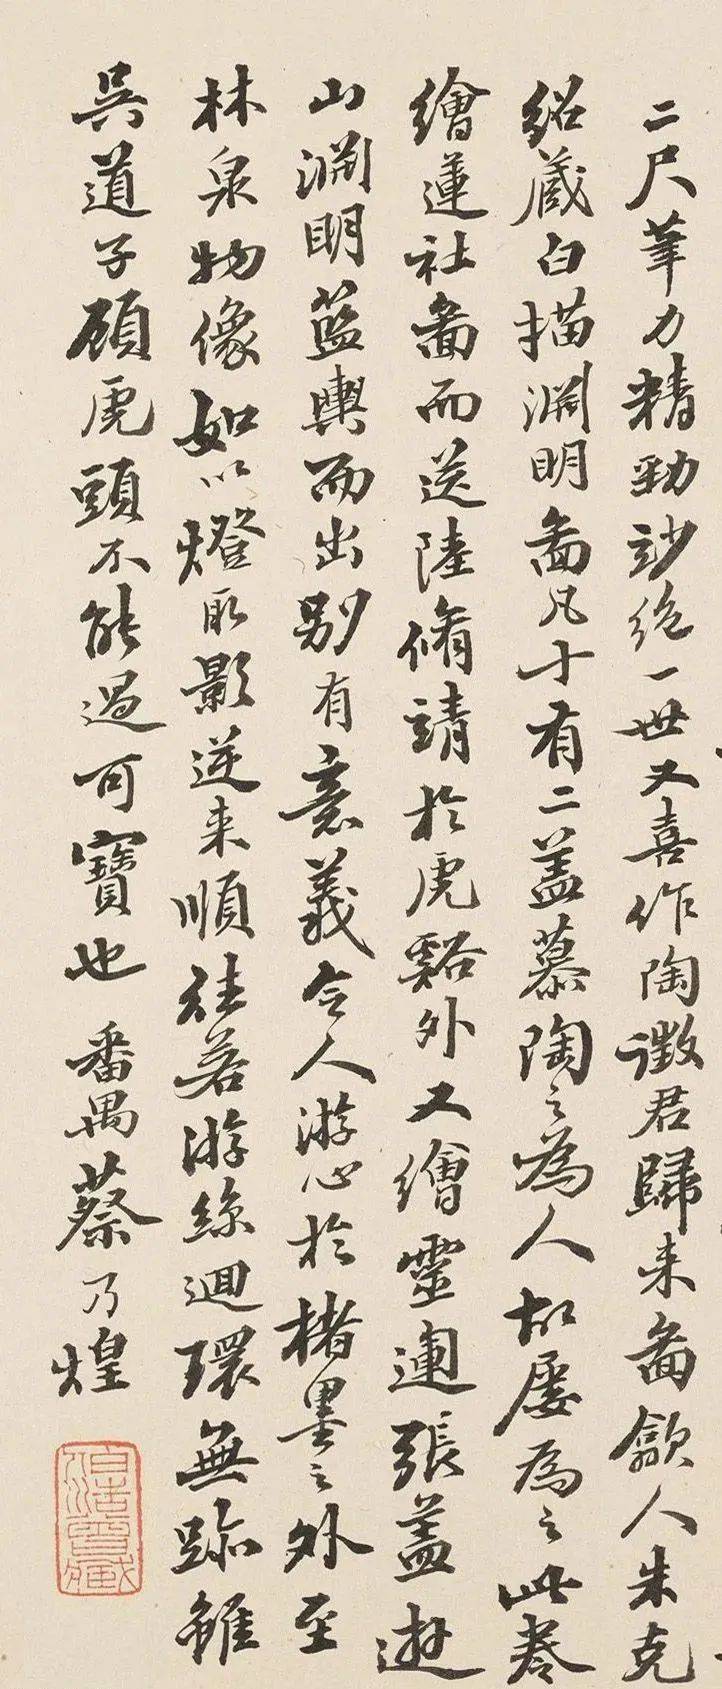 二尺筆力精勁玅絶一世又喜作陶徵君歸来啚歙人朱克
紹蔵白描淵明啚凡十有二盖慕陶之為人故屡為之此巻
繪蓮社啚而送陸脩靖於虎谿外又繪靈運張盖遊
山淵明藍輿而出别有意義令人游心於楮墨之外至
林泉物像如以燈取影逆来順往若游絲迴環無跡雖
吳道子顧虎頭不能過可寶也 番禺蔡乃煌
伯浩曾藏